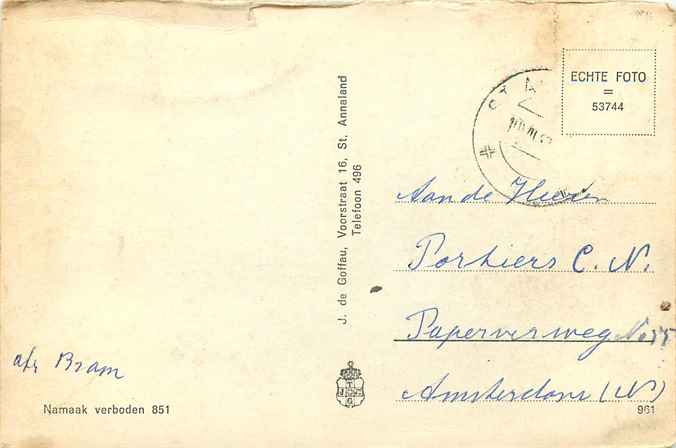 ECHTE FOTO
=
53744
J. de Goffau, Voorstraat 16, St. Annaland
Telefoon 496
Aan de Heeren
Portiers C. N.
Papierverweg No 55
Amsterdam (N)
afz Bram
Namaak verboden 851
961